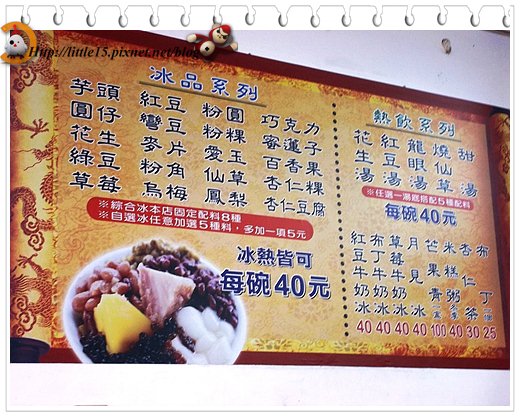 Http://little15.pixnet.net/blog
冰品系列
芋頭 紅豆 粉圓 巧克力
圓仔 彎豆 粉粿 蜜蓮子
花生 麥片 愛玉 百香果
綠豆 粉角 仙草 杏仁粿
草莓 烏梅 鳳梨 杏仁豆腐
※綜合冰本店固定配料8種
※自選冰任意加選5種料,多加一項5元
冰熱皆可
每碗40元
熱飲系列
花生湯
紅豆湯
龍眼湯
燒仙草
甜湯
※任選一湯底搭配5種配料
每碗40元
紅豆牛奶冰 40
布丁牛奶冰 40
草莓牛奶冰 40
月見冰 40
芒果青冰 100
米糕粥 40
杏仁茶 30
布丁 25